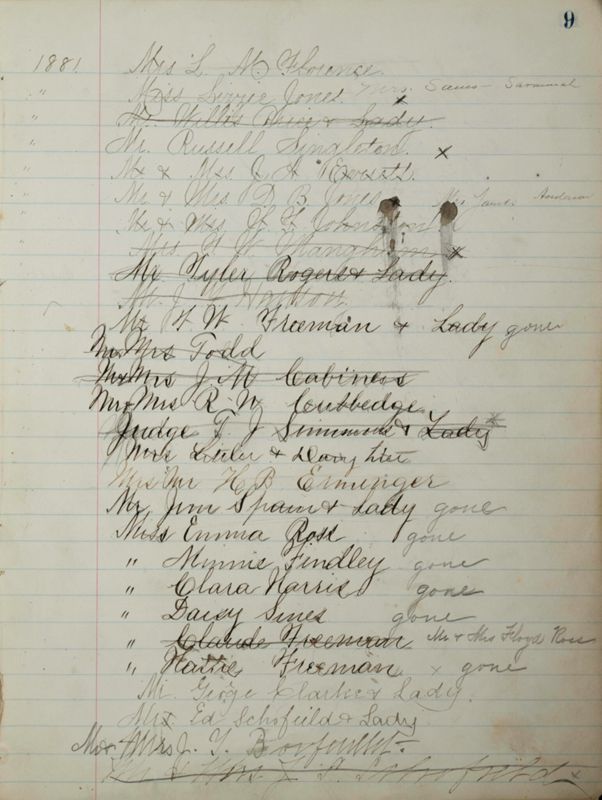 9
1881. Mrs L. M. Florence.
" Miss Lizzie Jones. Mrs. Savannah
" Mr. Willis Price & Lady.
" Mr. Russell Singleton. x
" Mr & Mrs J. A. Everett.
Mr & Mrs. D. B. Jones Mrs James Anderson
Mr & Mrs J. F. Johnston
Mrs F. W. Mangham x
Mr Tyler Rogers & Lady.
Mr. J.
Mr F. W. Freeman & Lady gone
Mr Mrs Todd
Mr & Mrs J. M. Cabiness
Mr & Mrs R. N.
Judge T. J. Simmons & Lady x
Mrs & Daughter
Mrs Mr H. B. Erminger
Mr. Jim Spain & Lady gone
Miss Emma Ross gone
" Minnie Findley gone
" Clara Harris gone
" Daisy Sines gone
" Claude Freeman. Mr & Mrs Floyd Ross
" Hattie Freeman. x gone
Mr. George Clarke & Lady.
Mr. Ed Schofield & Lady
Mr & Mrs J. T.
Mr & Mrs J. S. Schofield x